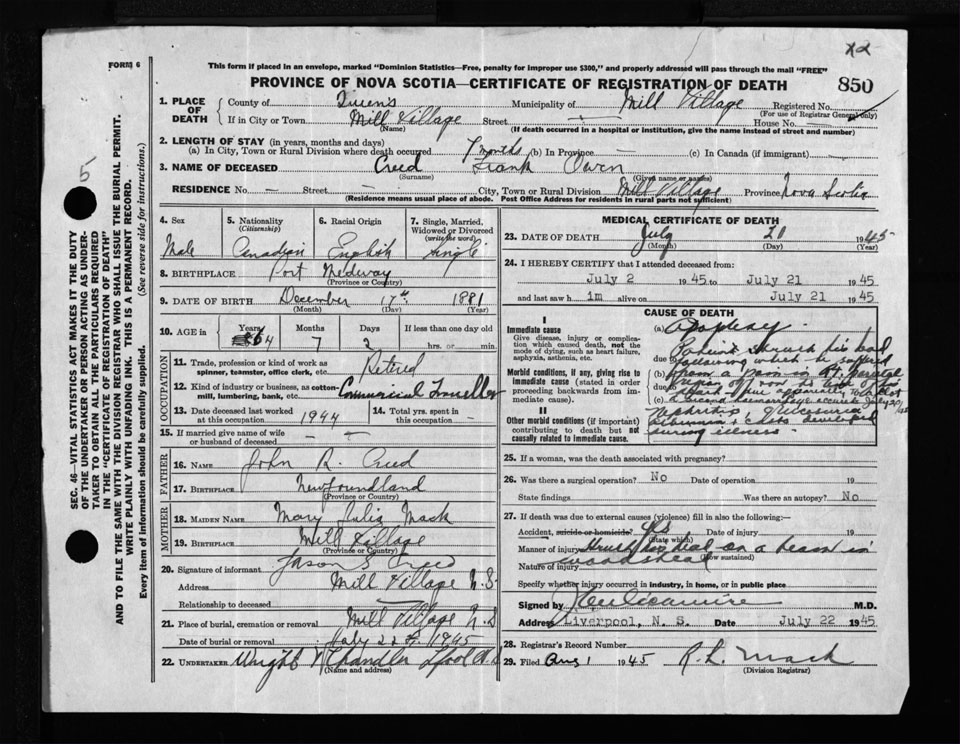 x2
FORM 6
This form if placed in an envelope, marked "Dominion Statistics—Free, penalty for improper use $300," and properly addressed will pass through the mail "FREE"
PROVINCE OF NOVA SCOTIA—CERTIFICATE OF REGISTRATION OF DEATH 850
1. PLACE OF DEATH
County of Queens Municipality of Mill Village Registered No.
(For use of Registrar General only)
If in City or Town Mill Village Street — House No. —
(Name) (If death occurred in a hospital or institution, give the name instead of street and number)
2. LENGTH OF STAY (in years, months and days)
(a) In City, Town or Rural Division where death occurred 7 months (b) In Province — (c) In Canada (if immigrant) —
3. NAME OF DECEASED Creed Frank Owen
(Surname) (Given name or names)
RESIDENCE No. — Street — City, Town or Rural Division Mill Village Province Nova Scotia
(Residence means usual place of abode. Post Office Address for residents in rural parts not sufficient)
5
SEC. 46—VITAL STATISTICS ACT MAKES IT THE DUTY
OF THE UNDERTAKER OR PERSON ACTING AS UNDER-
TAKER TO OBTAIN ALL THE PARTICULARS REQUIRED
IN THE "CERTIFICATE OF REGISTRATION OF DEATH"
AND TO FILE THE SAME WITH THE DIVISION REGISTRAR WHO SHALL ISSUE THE BURIAL PERMIT.
WRITE PLAINLY WITH UNFADING INK. THIS IS A PERMANENT RECORD.
Every item of information should be carefully supplied. (See reverse side for instructions.)
4. Sex
Male
5. Nationality
(Citizenship)
Canadian
6. Racial Origin
English
7. Single, Married,
Widowed or Divorced
(write the word)
Single
8. BIRTHPLACE Port Medway
(Province or Country)
9. DATE OF BIRTH December 17th 1881
(Month) (Day) (Year)
10. AGE in
Years Months Days If less than one day old
64 7 3 hrs. or min.
11. Trade, profession or kind of work as
spinner, teamster, office clerk, etc. Retired
12. Kind of industry or business, as cotton-
mill, lumbering, bank, etc. Commercial Traveller
13. Date deceased last worked
at this occupation 1944
14. Total yrs. spent in
this occupation —
15. If married give name of wife
or husband of deceased — —
FATHER
16. NAME John R. Creed
17. BIRTHPLACE Newfoundland
(Province or Country)
MOTHER
18. MAIDEN NAME Mary Julia Mack
19. BIRTHPLACE Mill Village
(Province or Country)
20. Signature of informant Jason S Creed
Address Mill Village N.S.
Relationship to deceased
21. Place of burial, cremation or removal Mill Village N.S
Date of burial or removal July 22 1945
22. UNDERTAKER Wright Chandler Lpool N.S
(Name and address)
MEDICAL CERTIFICATE OF DEATH
23. DATE OF DEATH July 21 1945
(Month) (Day) (Year)
24. I HEREBY CERTIFY that I attended deceased from:
July 2 1945 to July 21 1945
and last saw him alive on July 21 1945
CAUSE OF DEATH
I
Immediate cause
Give disease, injury or compli-
cation which caused death, not the
mode of dying, such as heart failure,
asphyxia, asthenia, etc.
Morbid conditions, if any, giving rise to
immediate cause (stated in order
proceeding backwards from im-
mediate cause).
II
Other morbid conditions (if important)
contributing to death but not
causally related to immediate cause.
(a) Apoplexy.
Patient struck his head
due to which he suffered
(b) from a
due to
(c) second haemorrhage occured July
Nephritis, Glucosuria
albumin & casts developed
during illness.
25. If a woman, was the death associated with pregnancy?
26. Was there a surgical operation? No Date of operation 19
State findings Was there an autopsy? No
27. If death was due to external causes (violence) fill in also the following:—
Accident, suicide or homicide? yes Date of injury 19
(State which)
Manner of injury Struck his head on a beam in
(How sustained)
Nature of injury woodshed
Specify whether injury occurred in industry, in home, or in public place
Signed by M.D.
Address Liverpool, N. S. Date July 22 1945
28. Registrar's Record Number
29. Filed Aug 1 1945 R. L. Mack
(Division Registrar)